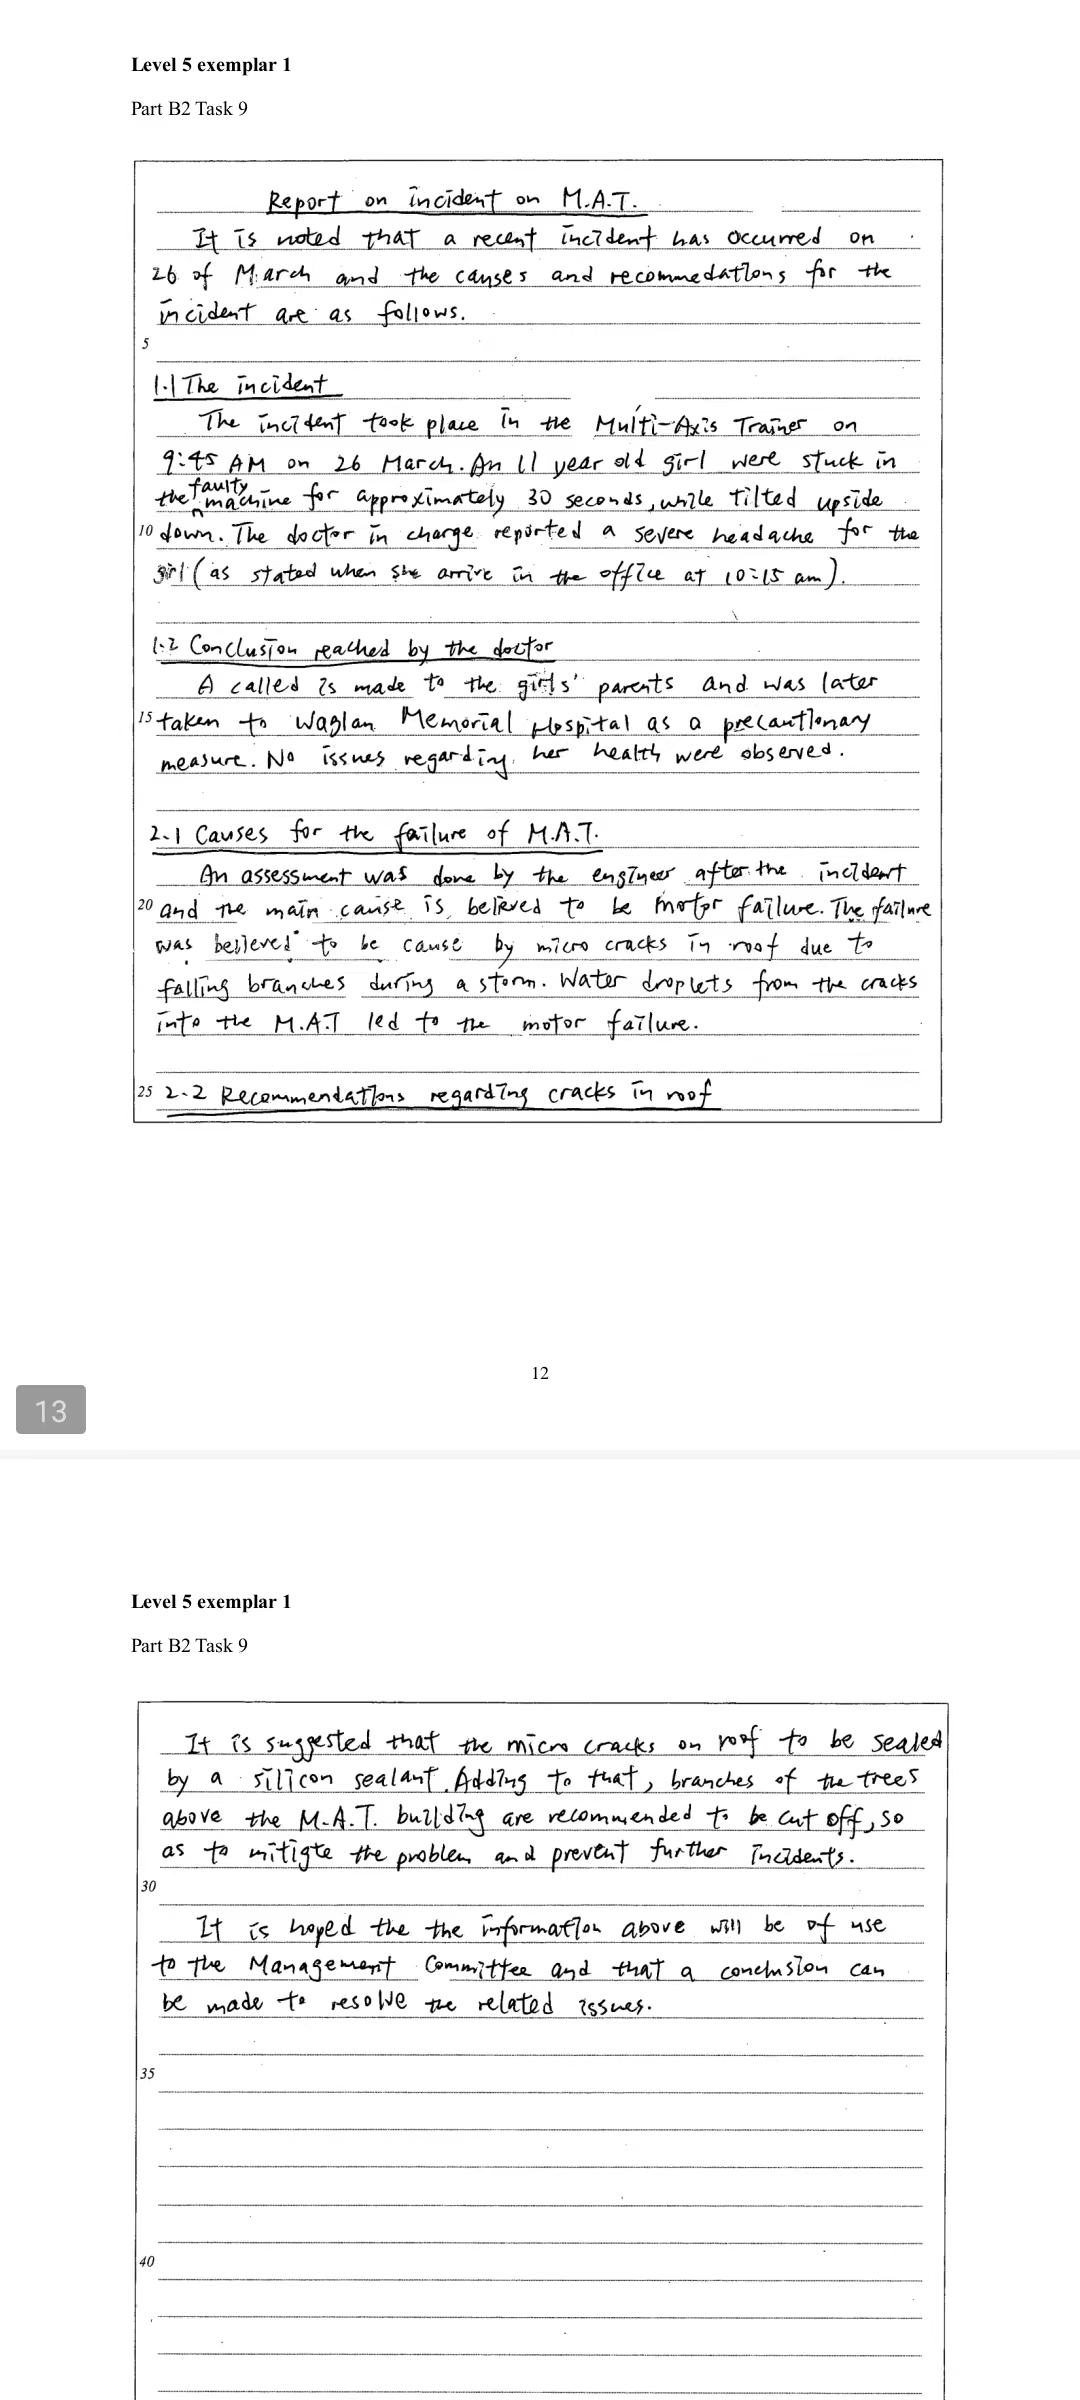 Level 5 exemplar 1
Part B2 Task 9
Report on incident on M.A.T.
It is noted that a recent incident has occurred on
26 of March and the causes and recommedations for the
incident are as follows.
5
1.1 The incident
The incident took place in the Multi-Axis Trainer on
9:45 AM on 26 March. An 11 year old girl were stuck in
the faulty machine for approximately 30 seconds, while tilted upside
10 down. The doctor in charge reported a severe headache for the
girl (as stated when she arrive in the office at 10:15 am).
1.2 Conclusion reached by the doctor
A called is made to the girls' parents and was later
15 taken to Waglan Memorial Hospital as a precautionary
measure. No issues regarding her health were observed.
2.1 Causes for the failure of M.A.T.
An assessment was done by the engineer after the incident
20 and the main cause is believed to be motor failure. The failure
was believed to be cause by micro cracks in roof due to
falling branches during a storm. Water droplets from the cracks
into the M.A.T led to the motor failure.
25 2.2 Recommendations regarding cracks in roof
12
13
Level 5 exemplar 1
Part B2 Task 9
It is suggested that the micro cracks on roof to be sealed
by a silicon sealant. Adding to that, branches of the trees
above the M.A.T. building are recommended to be cut off, so
as to mitigte the problem and prevent further incidents.
30
It is hoped the the information above will be of use
to the Management Committee and that a conclusion can
be made to resolve the related issues.
35
40